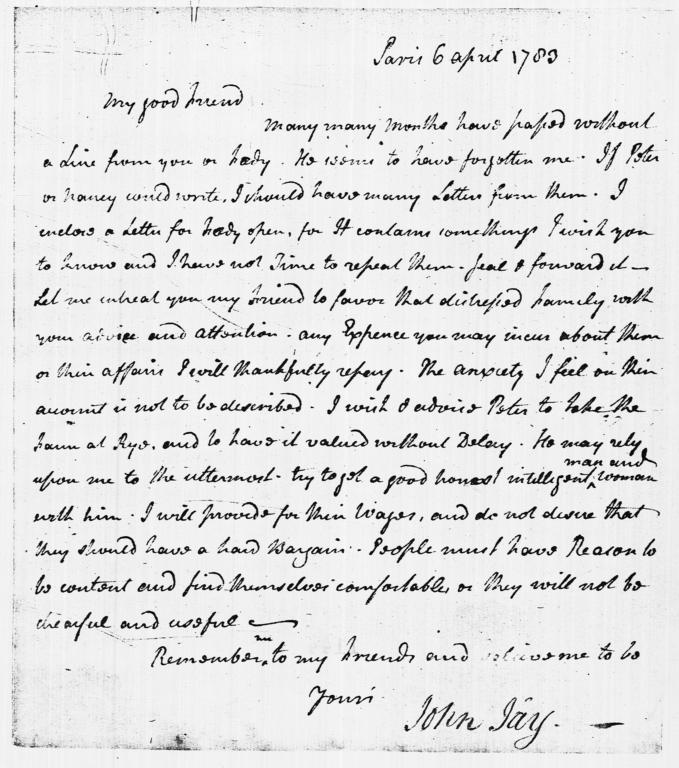 Paris 6 april 1783
My good friend
Many many Months have passed without
a Line from you or fædy. He seems to have forgotten me. If Peter
or Nancy could write, I should have many Letters from them. I
inclose a Letter for fædy open, for It contains something I wish you
to know and I have not Time to repeat them. Seal & forward it —
Let me intreat you my Friend to favor that distressed Family with
your advice and attention. any Expence you may incur about them
or their affairs I will thankfully repay. The anxiety I feel on their
account is not to be described. I wish & advise Peter to take the
Farm at Rye, and to have it valued without Delay. He may rely
upon me to the uttermost. try to get a good honest intelligent man and woman
with him. I will provide for their Wages, and do not desire that
they should have a hard Bargain. People must have Reason to
be content and find themselves comfortable, or they will not be
chearful and useful —
Remember me to my Friends and believe me to be
Yours
John Jay. —